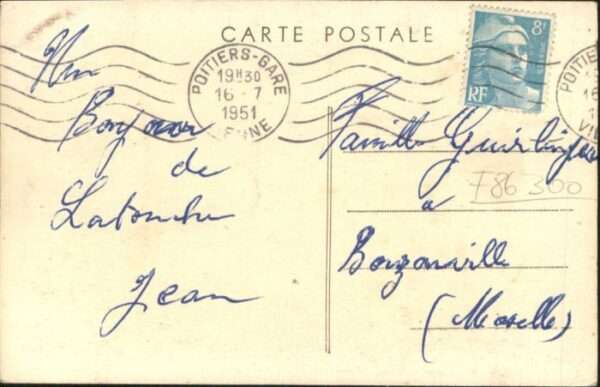 CARTE POSTALE
8F
RF
POITIERS-GARE
19H30
16-7
1951
VIENNE
POITIERS
16
VI
Un
Bonjour
de
Latouche
Jean
Famille
F86 300
a
Bouzonville
(Moselle)